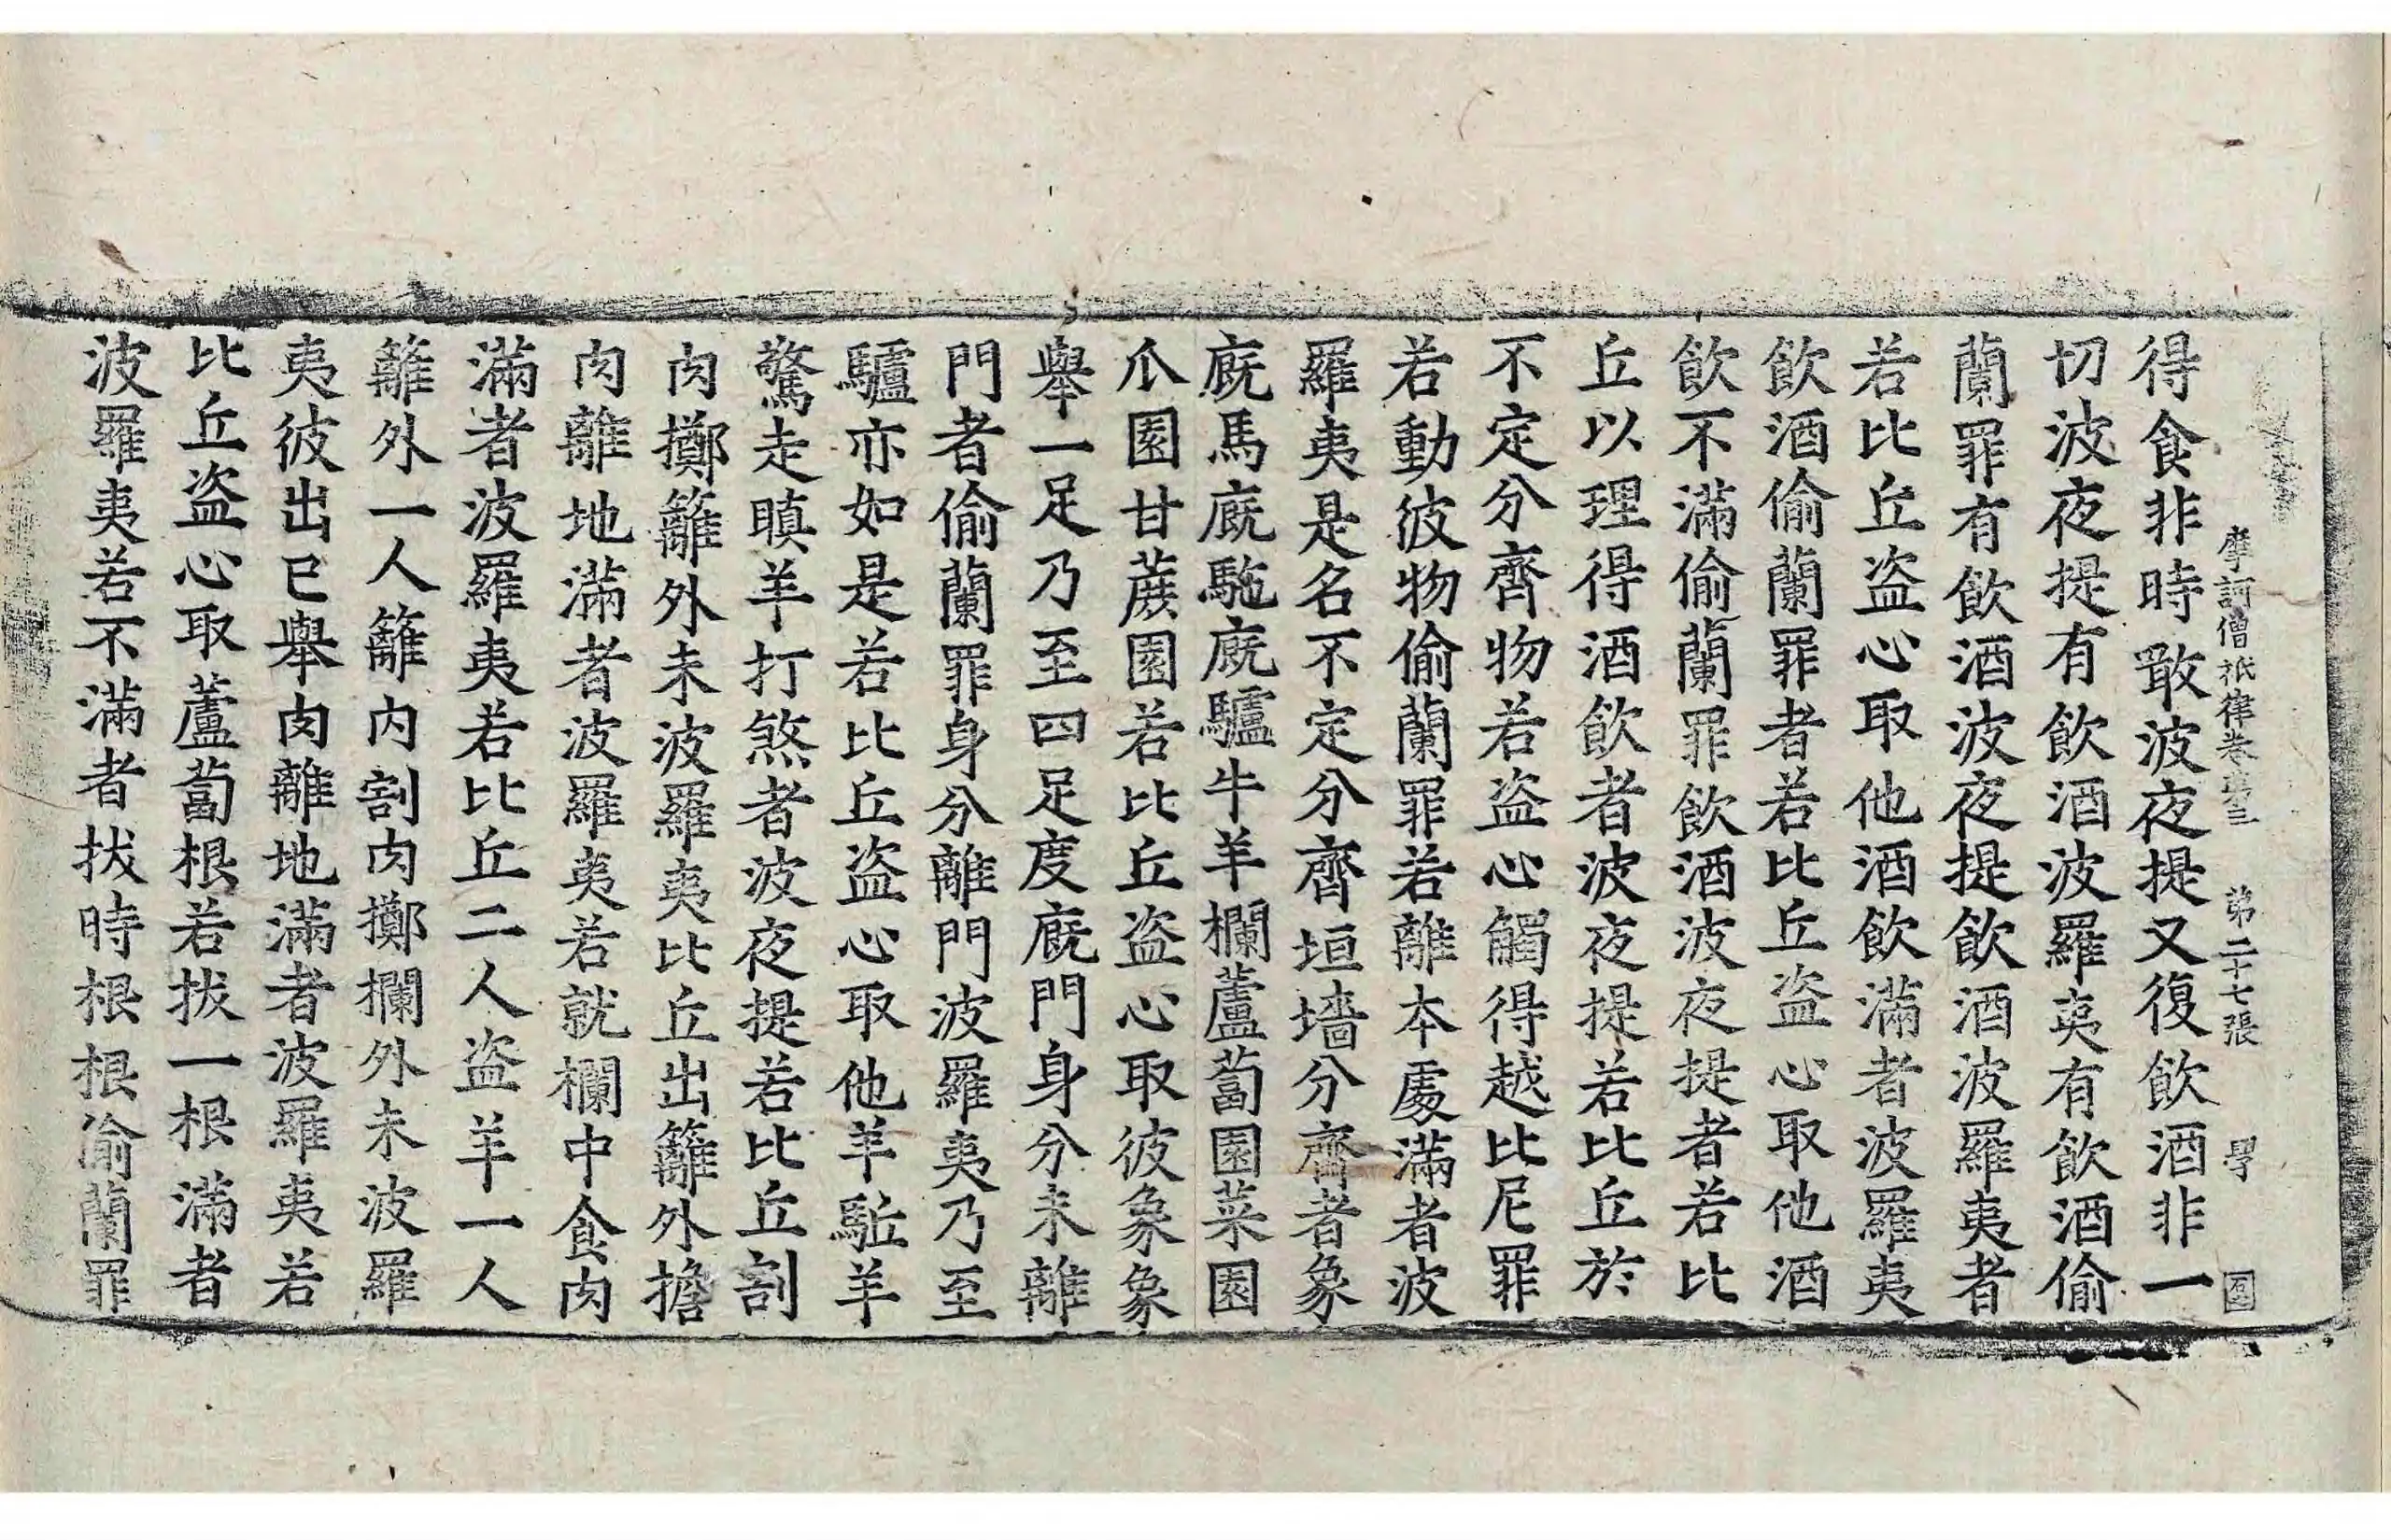 摩訶僧祇律卷第三　第二十七張　學
得食非時敢波夜提又復飲酒非一
切波夜提有飲酒波羅夷有飲酒偷
蘭罪有飲酒波夜提飲酒波羅夷者
若比丘盜心取他酒飲滿者波羅夷
飲酒偷蘭罪者若比丘盜心取他酒
飲不滿偷蘭罪飲酒波夜提者若比
丘以理得酒飲者波夜提若比丘於
不定分齊物若盜心觸得越比尼罪
若動彼物偷蘭罪若離本處滿者波
羅夷是名不定分齊垣墻分齊者象
廐馬廐駞廐驢牛羊欄蘆蔔園菜園
瓜園甘蔗園若比丘盜心取彼象象
舉一足乃至四足度廐門身分未離
門者偷蘭罪身分離門波羅夷乃至
驢亦如是若比丘盜心取他羊駈羊
驚走瞋羊打煞者波夜提若比丘割
肉擲籬外未波羅夷比丘出籬外擔
肉離地滿者波羅夷若就欄中食肉
滿者波羅夷若比丘二人盜羊一人
籬外一人籬内割肉擲欄外未波羅
夷彼出已舉肉離地滿者波羅夷若
比丘盜心取蘆蔔根若拔一根滿者
波羅夷若不滿者拔時根根偷蘭罪